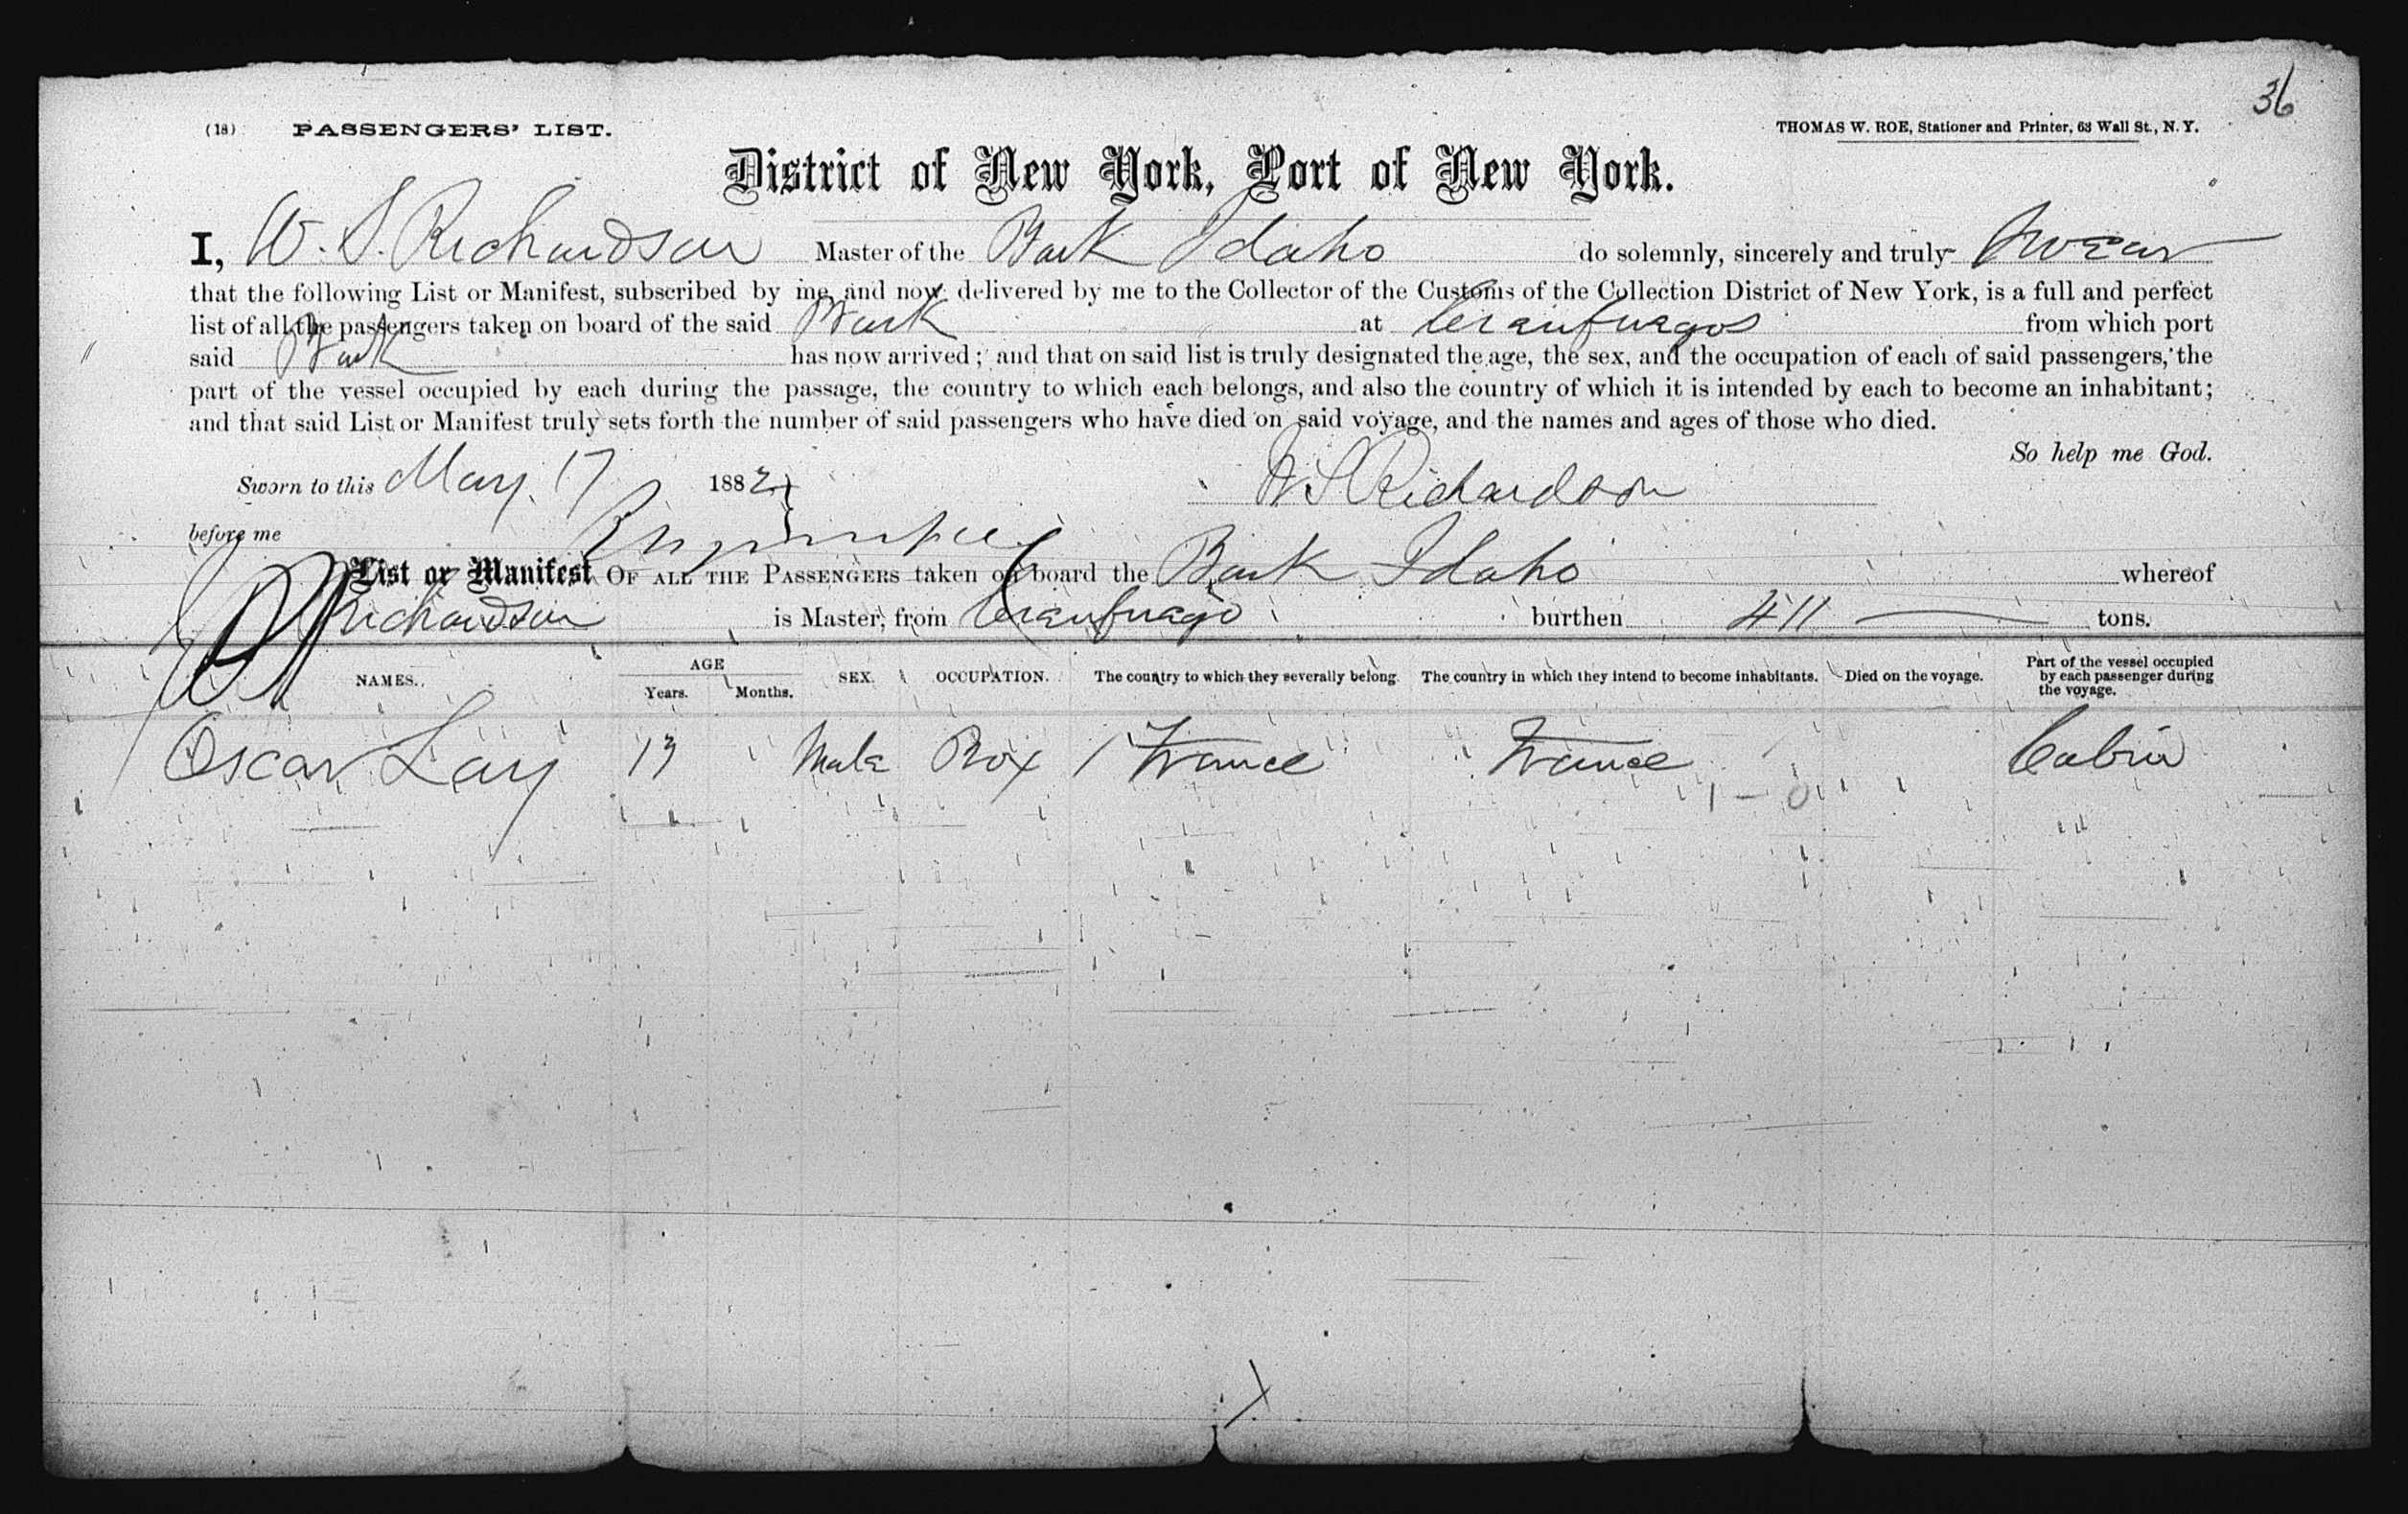 36
(18) PASSENGERS' LIST. THOMAS W. ROE, Stationer and Printer, 63 Wall St., N. Y.
District of New York, Port of New York.
I, W. S. Richardson Master of the Bark Idaho do solemnly, sincerely and truly swear
that the following List or Manifest, subscribed by me, and now delivered by me to the Collector of the Customs of the Collection District of New York, is a full and perfect
list of all the passengers taken on board of the said Bark at Cienfuegos from which port
said Bark has now arrived; and that on said list is truly designated the age, the sex, and the occupation of each of said passengers, the
part of the vessel occupied by each during the passage, the country to which each belongs, and also the country of which it is intended by each to become an inhabitant;
and that said List or Manifest truly sets forth the number of said passengers who have died on said voyage, and the names and ages of those who died.
So help me God.
Sworn to this May 17 1882 W S Richardson
before me
List or Manifest OF ALL THE PASSENGERS taken on board the Bark Idaho whereof
Richardson is Master, from burthen 411 tons.
NAMES. AGE Years. Months. SEX. OCCUPATION. The country to which they severally belong. The country in which they intend to become inhabitants. Died on the voyage. Part of the vessel occupied by each passenger during the voyage.
Oscar Lay 13 Male Boy 1 France France Cabin
1 - 0